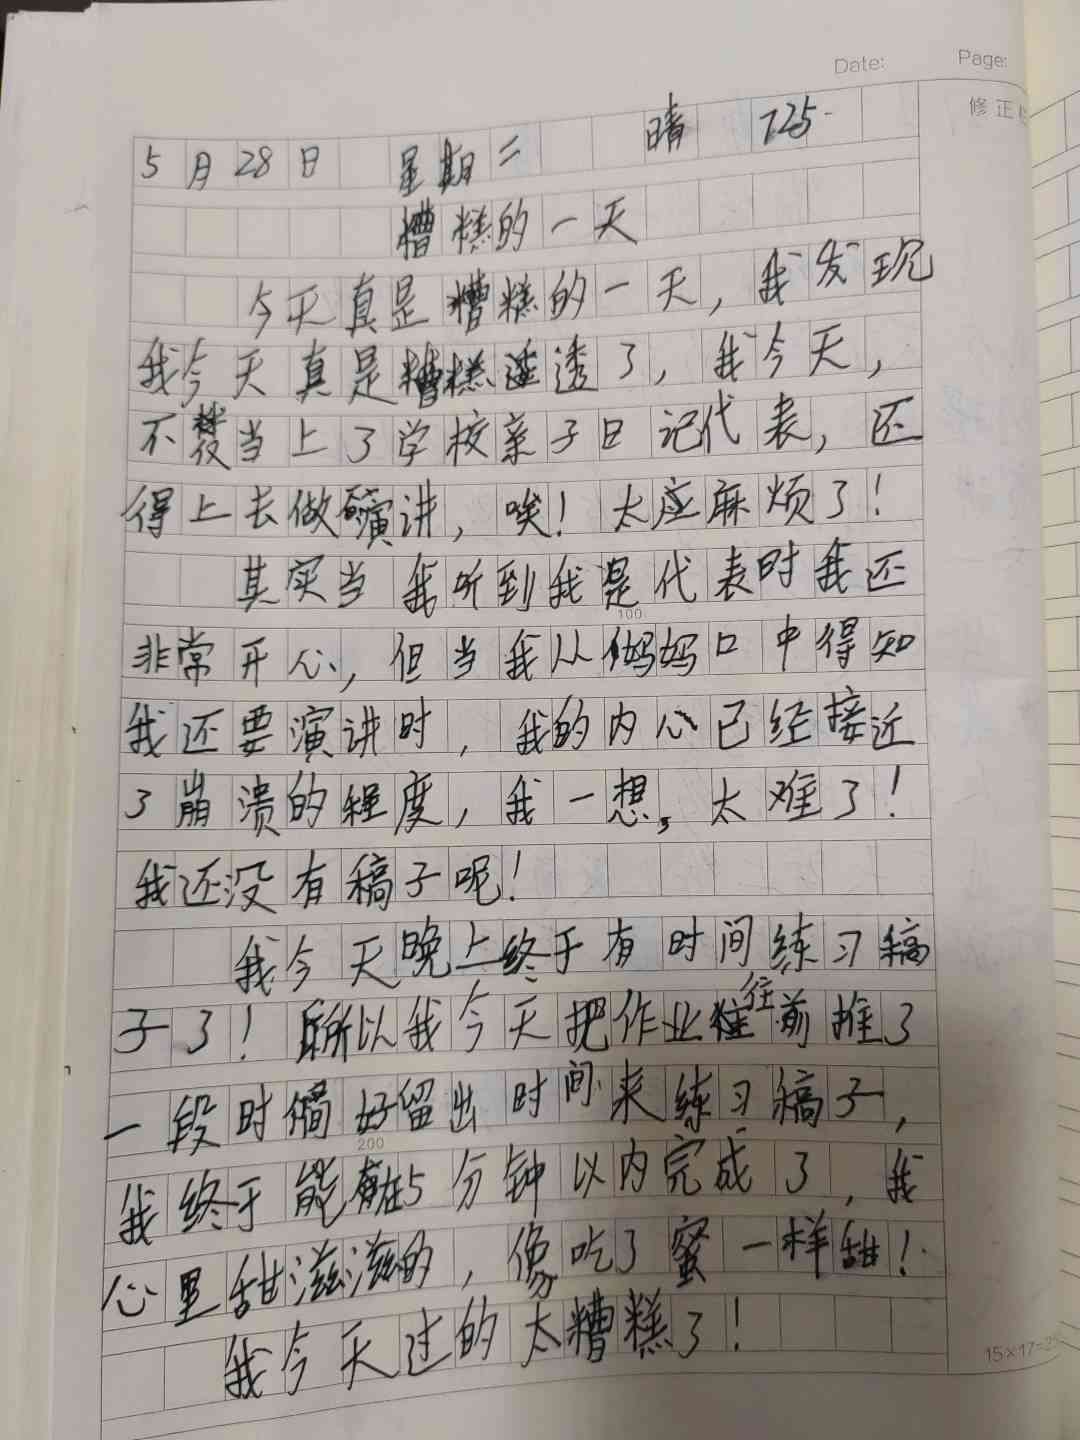 Date: Page:
修正
5月28日 星期二 晴 725
糟糕的一天
今天真是糟糕的一天,我发现
我今天真是糟糕透了,我今天,
不当上了学校亲子日记代表,还
得上去做演讲,唉!太麻烦了!
其实当我听到我是代表时我还
100
非常开心,但当我从妈妈口中得知
我还要演讲时,我的内心已经接近
了崩溃的程度,我一想,太难了!
我还没有稿子呢!
我今天晚上终于有时间练习稿
子了!所以我今天把作业往前推了
一段时间好留出时间来练习稿子,
200
我终于能在5分钟以内完成了,我
心里甜滋滋的,像吃了蜜一样甜!
我今天过的太糟糕了!
15×17=25